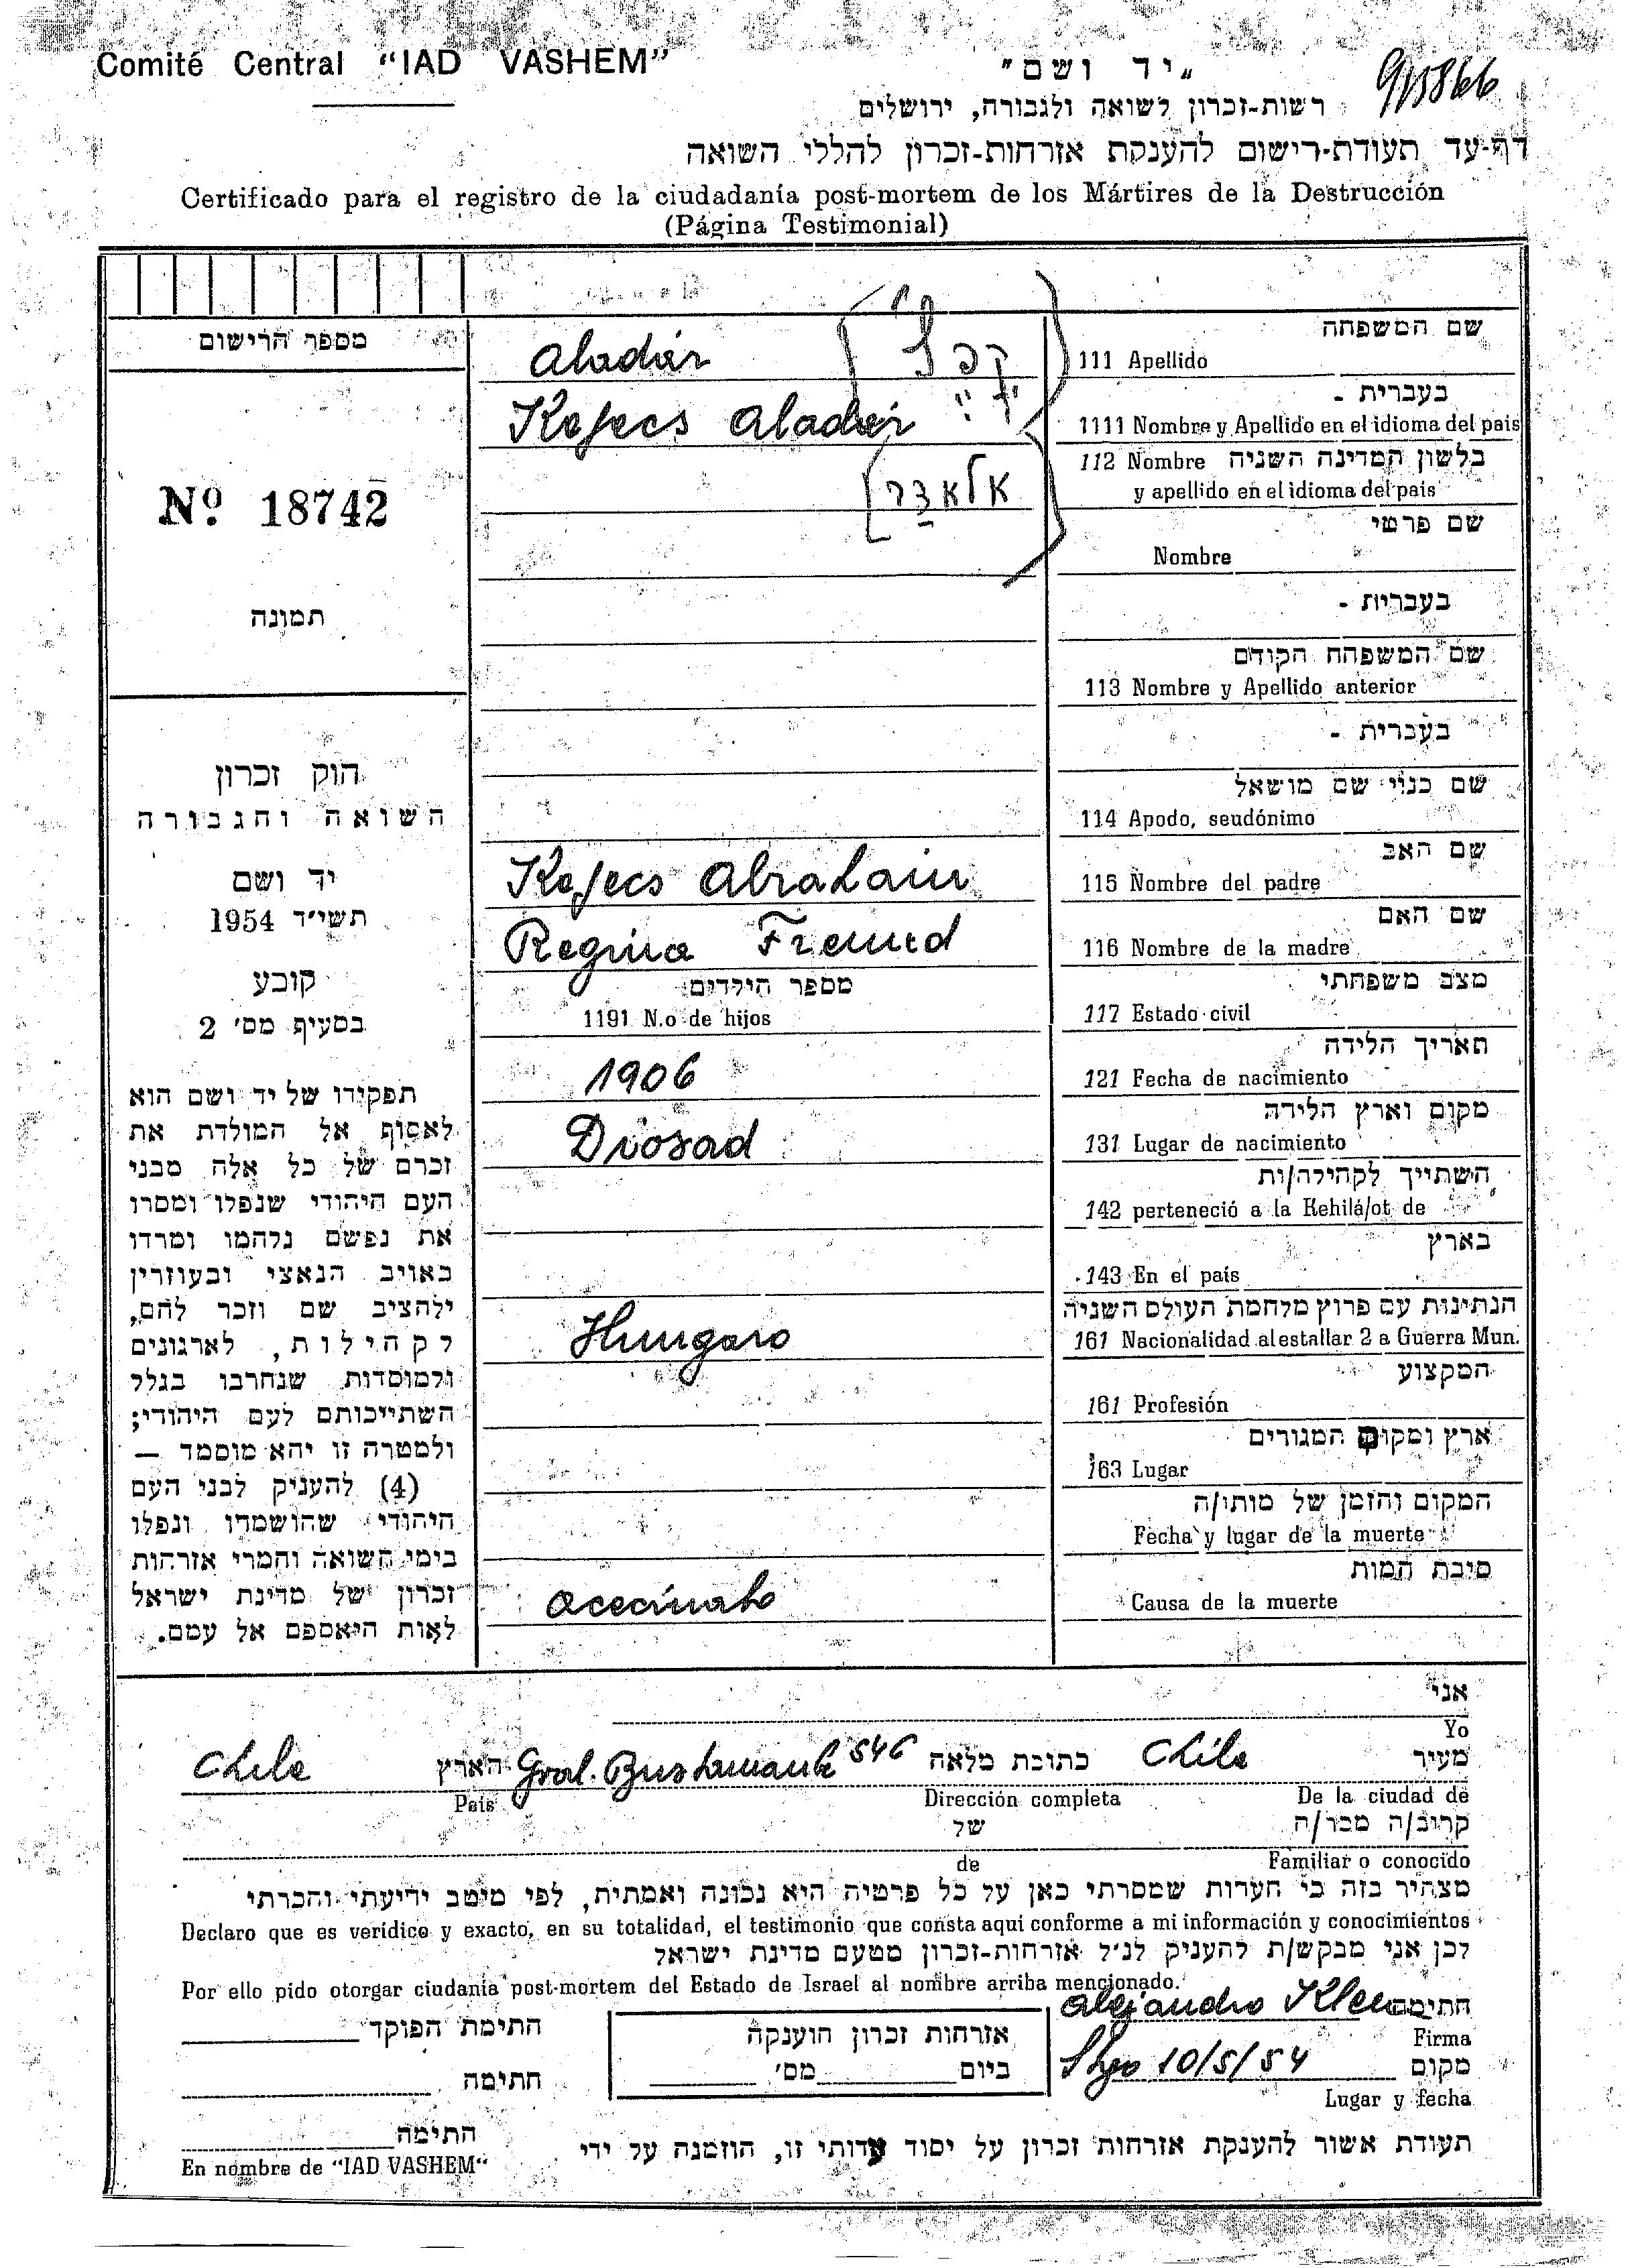 Comité Central "IAD VASHEM"
"יד ושם"
רשות-זכרון לשואה ולגבורה, ירושלים
דף-עד תעודת-רישום להענקת אזרחות-זכרון לחללי השואה
Certificado para el registro de la ciudadanía post-mortem de los Mártires de la Destrucción
(Página Testimonial)
מספר הרישום
Nº 18742
תמונה
חוק זכרון
השואה והגבורה
יד ושם
תשי״ד 1954
קובע
בסעיף מס' 2
תפקידו של יד ושם הוא
לאסוף אל המולדת את
זכרם של כל אלה מבני
העם היהודי שנפלו ומסרו
את נפשם נלחמו ומרדו
באויב הנאצי ובעוזריו
ולהציב שם וזכר להם,
לקהילות, לארגונים
ולמוסדות שנחרבו בגלל
השתייכותם לעם היהודי;
ולמטרה זו יהא מוסמך —
(4) להעניק לבני העם
היהודי שהושמדו ונפלו
בימי השואה והמרי אזרחות
זכרון של מדינת ישראל
לאות היאספם אל עמם.
שם המשפחה
111 Apellido
Aladár
בעברית -
1111 Nombre y Apellido en el idioma del pais
Kefecs Aladár
112 Nombre בלשון המדינה השניה
y apellido en el idioma del pais
אלאדר
שם פרטי
Nombre
בעברית -
שם המשפחה הקודם
113 Nombre y Apellido anterior
בעברית -
שם כנוי שם מושאל
114 Apodo, seudónimo
שם האב
115 Nombre del padre
Kefecs Abraham
שם האם
116 Nombre de la madre
Regina Freund
מצב משפחתי
117 Estado civil
מספר הילדים
1191 N.o de hijos
תאריך הלידה
121 Fecha de nacimiento
1906
מקום וארץ הלידה
131 Lugar de nacimiento
Diosad
השתייך לקהילה/ות
142 perteneció a la Kehilá/ot de
בארץ
143 En el país
הנתינות עם פרוץ מלחמת העולם השניה
161 Nacionalidad al estallar 2 a Guerra Mun.
Hungaro
המקצוע
161 Profesión
ארץ ומקום המגורים
163 Lugar
המקום והזמן של מותו/ה
Fecha y lugar de la muerte
סיבת המות
Causa de la muerte
acecinato
אני
Yo
מעיר Chile כתובת מלאה Gral. Bustamante 546 הארץ Chile
De la ciudad de Dirección completa Pais
קרוב/ה מכר/ה של
Familiar o conocido de
מצהיר בזה כי העדות שמסרתי כאן על כל פרטיה היא נכונה ואמתית, לפי מיטב ידיעתי והכרתי
Declaro que es verídico y exacto, en su totalidad, el testimonio que consta aqui conforme a mi información y conocimientos
לכן אני מבקש/ת להעניק לנ״ל אזרחות-זכרון מטעם מדינת ישראל
Por ello pido otorgar ciudania post-mortem del Estado de Israel al nombre arriba mencionado.
חתימה Alejandro Klein
Firma
מקום Stgo 10/5/54
Lugar y fecha
אזרחות זכרון הוענקה
ביום מס'
חתימת הפוקד
חתימה
חתימה
En nombre de "IAD VASHEM"
תעודת אשור להענקת אזרחות זכרון על יסוד עדותי זו, הוזמנה על ידי